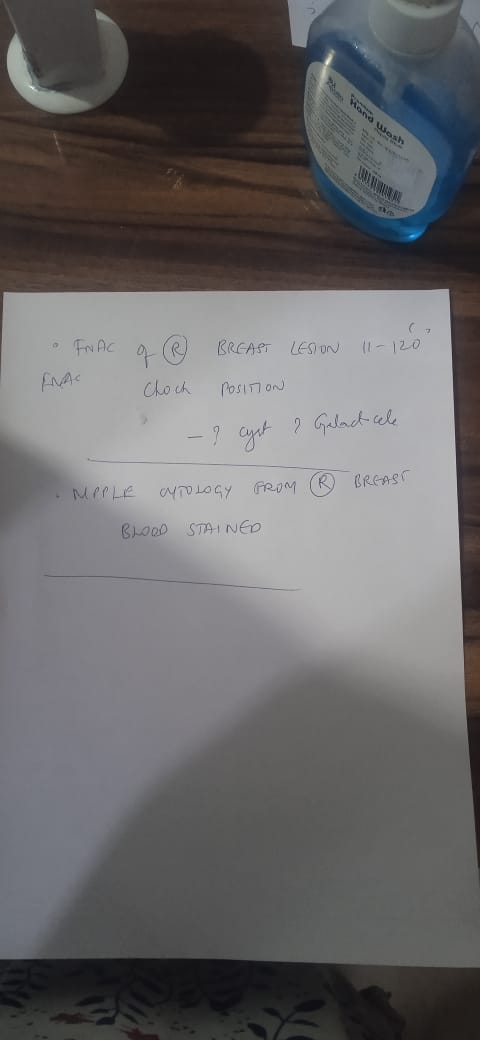 Hand Wash
FNAC of (R) BREAST LESION 11-120
FNAC Clock POSITION
- ? cyst ? Galactcele
NIPPLE CYTOLOGY FROM (R) BREAST
BLOOD STAINED